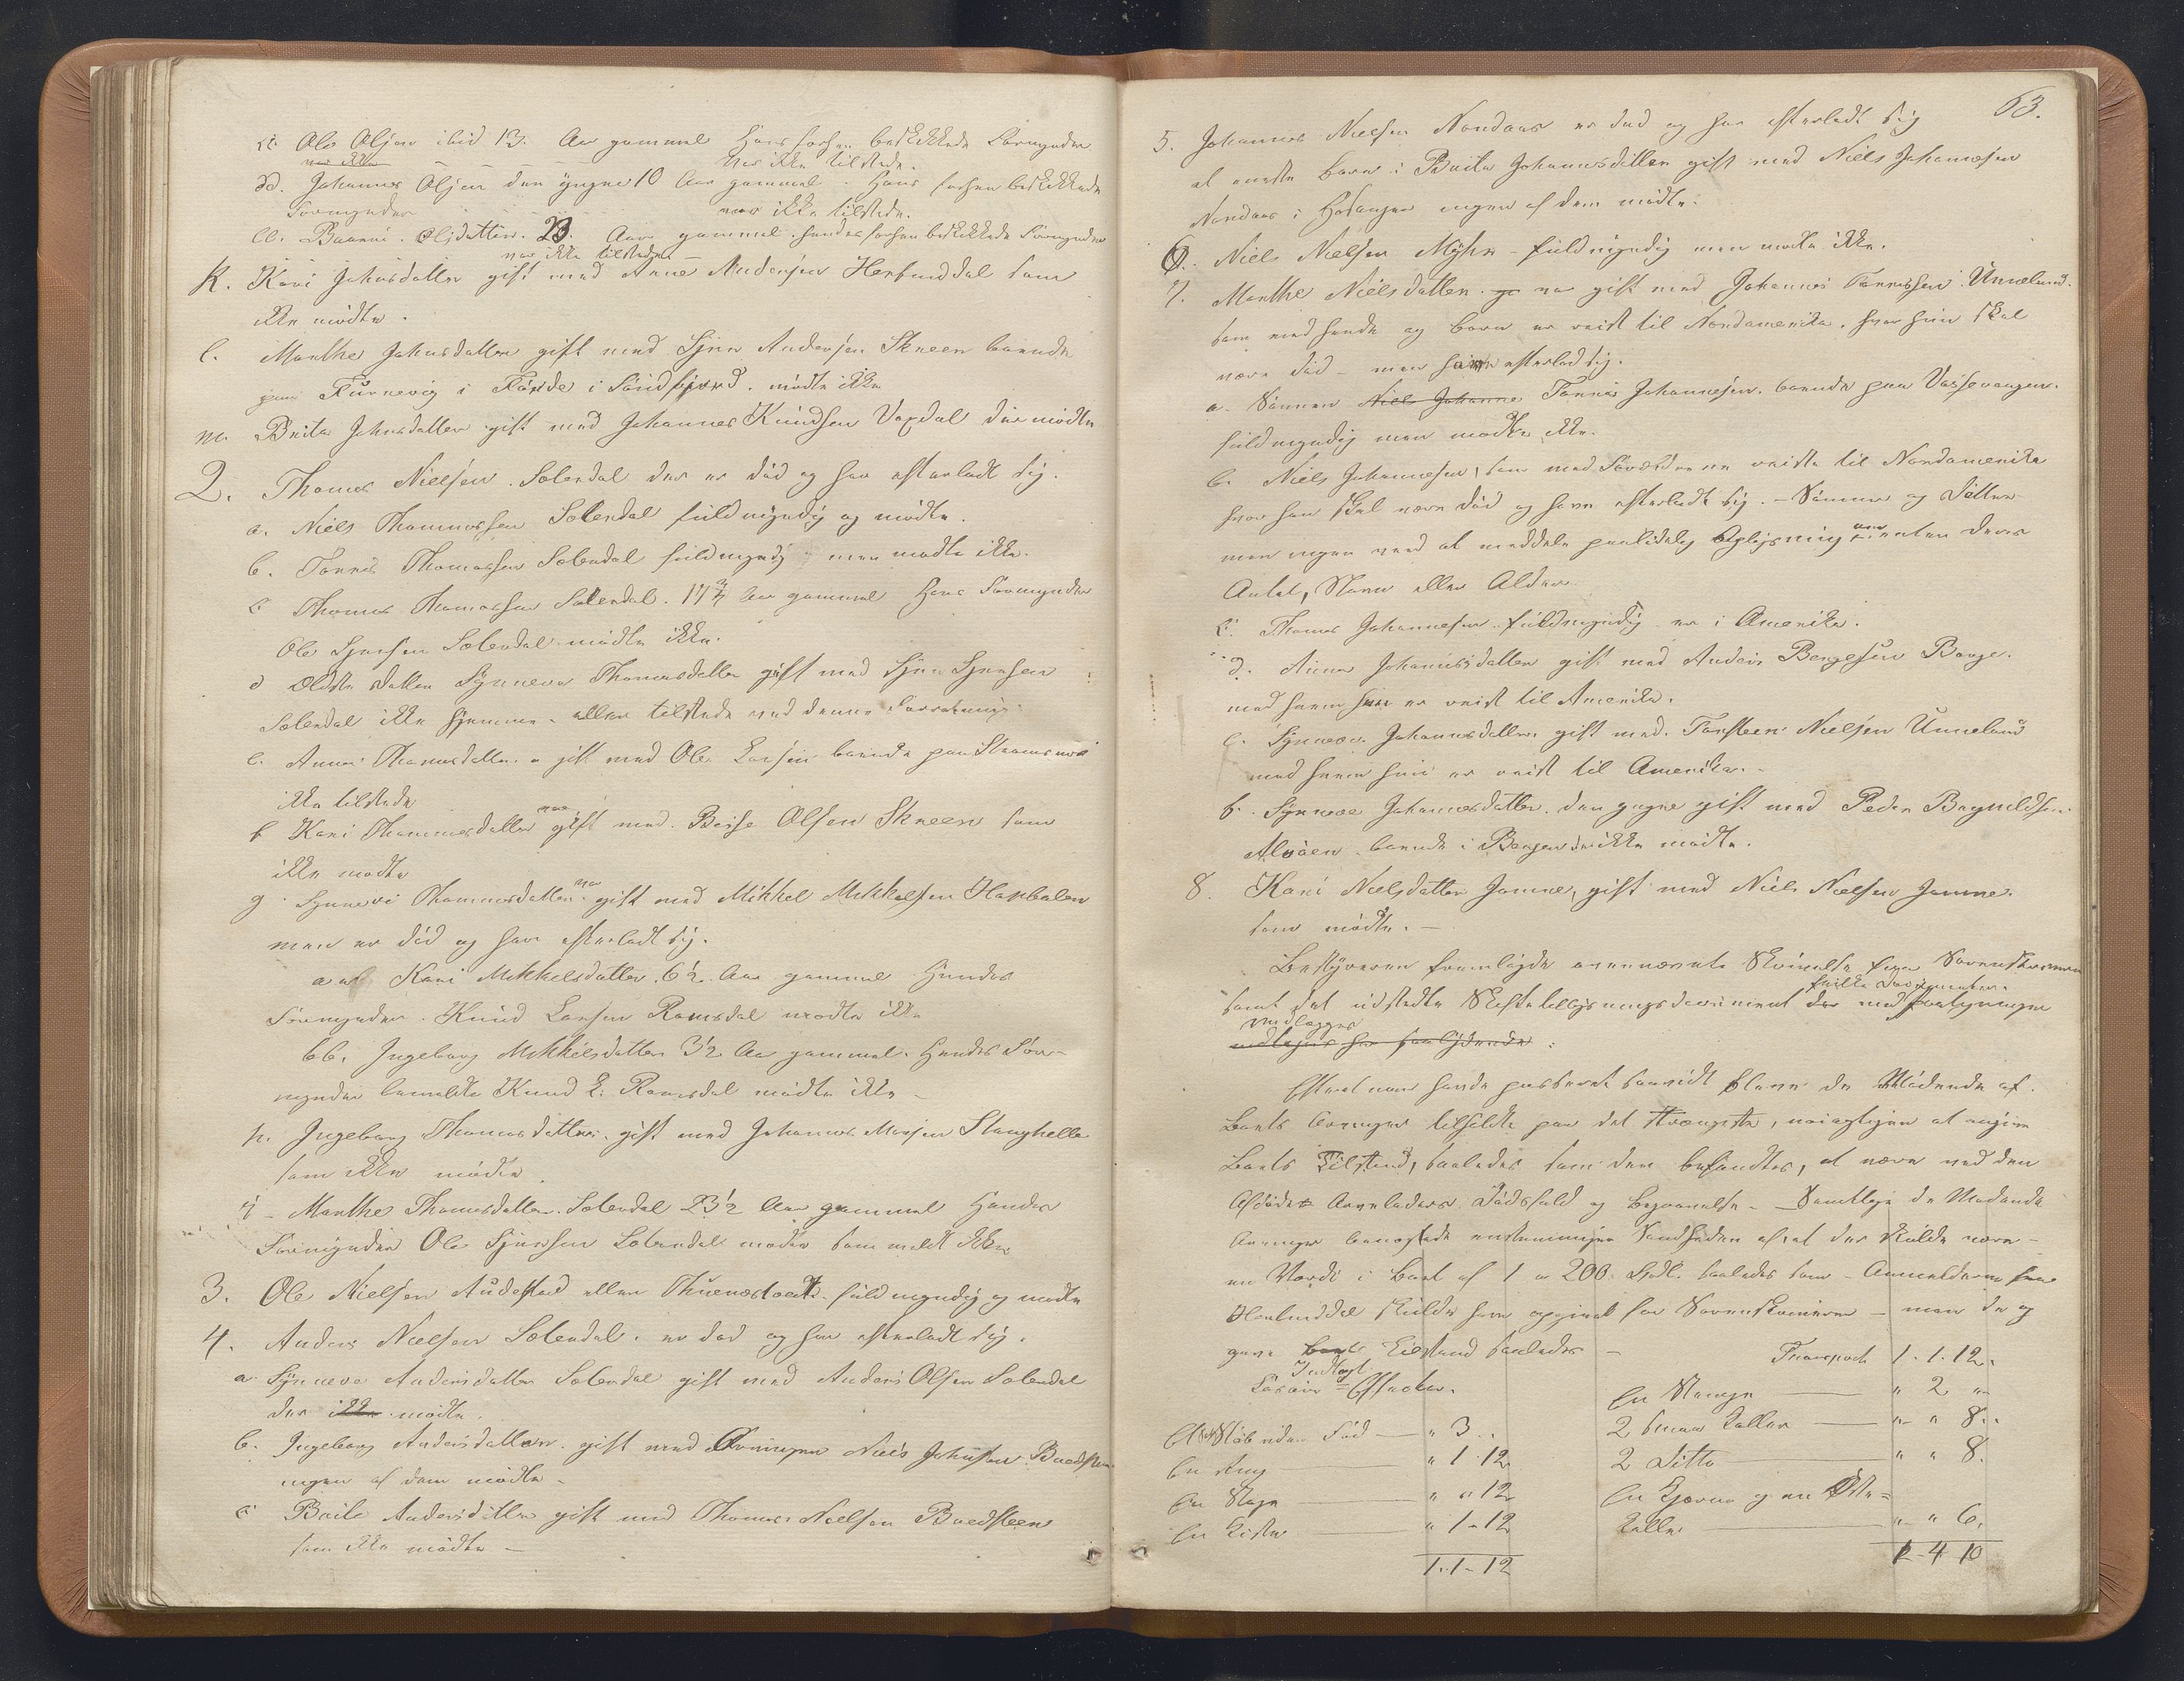 cc. Ole Olsen ibid 13. Aar gammel Hans forhen beskikkede Formynder
var ikke tilstede.
dd. Johannes Olsen den yngre 10 Aar gammel. Hans forhen beskikkede
Formynder var ikke tilstede.
ee. Olsdatter. 23. Aar gammel. hendes forhen beskikkede Formynder
var ikke tilstede
k. Kari Johnsdatter gift med Arne Andersen Herfinddal som
ikke mødte.
l. Marthe Johnsdatter gift med Sjur Andersen Skreen boende
paa Furnevig i Førde i Søndfjord. mødte ikke
m. Brita Johnsdatter gift med Johannes Knudsen Vaxdal der mødte
2. Thomas Nielsen Solendal der er død og har efterladt sig.
a. Niels Thomassen Solendal fuldmyndig og mødte.
b. Tønnes Thomassen Solendal fuldmyndig men mødte ikke.
c Thomas Thomassen Solendal. 17 3/4 Aar gammel Hans Formynder
Ole Sjursen Solendal mødte ikke.
d Ældste Datter Synneva Thomasdatter gift med Sjur Sjursen
Solendal ikke hjemme eller tilstede ved denne Forretning.
e. Anna Thomasdatter gift med Ole Larsen boende paa
ikke tilstede
f Kari Thommesdatter var gift med. Olsen Skreen som
ikke mødte
g Synnevi Thommesdatter var gift med Mikkel Mikkelsen
men er død og har efterladt sig.
aa Kari Mikkelsdatter 6½ Aar gammel Hendes
Formynder. Knud Larsen Ramsdal mødte ikke
bb. Ingeborg Mikkelsdatter 3½ Aar gammel. Hendes For-
mynder bemeldte Knud L. Ramsdal mødte ikke -
h. Ingeborg Thomasdatter gift med Johannes Monsen Stanghelle
som ikke mødte.
i - Marthe Thomasdatter Solendal 23½ Aar gammel Hendes
Formynder Ole Sjursen Solendal mødte som meldt ikke
3. Ole Nielsen eller fuldmyndig og mødte
4. Anders Nielsen Solendal. er død og har efterladt sig.
a Synneva Andersdatter Solendal gift med Anders Olsen Solendal
der ikke mødte.
b. Ingeborg Andersdatter. gift med Niels Johnsen
ingen af dem mødte -
c Brita Andersdatter gift med Thomas Nielsen
som ikke mødte -
63.
5. Johannes Nielsen Nordaas er død og har efterladt sig
et eneste Barn: Brita Johannesdatter gift med Niels Johannesen
Nordaas i Hosanger ingen af dem mødte.
6. Niels Nielsen Myhre - fuldmyndig men mødte ikke.
7. Marthe Nielsdatter var gift med Johannes Tønnesen Unneland.
som med hende og Børn er reist til Nordamerika, hvor hun skal
være død - men efterlod sig.
a. Sønnen Niels Johanne Tønnes Johannesen. boende paa Vossevangen.
fuldmyndig men mødte ikke.
b. Niels Johannesen, som med Forældrene reiste til Nordamerika
hvor han skal være død og have efterladt sig. - Sønner og Døttre
men ingen veed at meddele paalidelig Oplysning om enten deres
Antal, Navn eller Alder.
c. Thomas Johannesen fuldmyndig er i Amerika.
d. Anna Johannesdatter gift med Anders Bergesen Borge.
med ham hun er reist til Amerika.
e. Synneva Johannesdatter gift med. Torsteen Nielsen Unneland
med ham hun er reist til Amerika. -
f. Synneve Johannesdatter den yngre gift med Peder
Alvøen boende i Bergen der ikke mødte.
8. Kari Nielsdatter Jamne, gift med Niels Nielsen Jamne.
som mødte. -
Bestyreren fremlagde ovennævnte Skrivelse fra Sorenskriveren
samt det udstedte Skiftetillysningsdocument hvilke Documenter med Paategninger
vedlægges
:
Efterat man havde passeret saavidt bleve de Mødende af
Boets Arvinger tilholdte paa det strængeste, nøiagtigen at angive
Boets Tilstand, saaledes som den befandtes, at være ved den
Afdøde Arveladers Dødsfald og Begravelse. - Samtlige de Mødende
Arvinger benægtede enstemmigen Sandheden af at der skulde være -
en Værdi i Boet af 1 a 200 Spdl. saaledes som
skulde have opgivet for Sorenskriveren - men de og
gave Boets Tilstand saaledes -
Indbragt
Løsøre-Effecter. Transport 1. 1. 12.
En Stang " 2 "
2 smaa Koller " " 8.
2 Ditto " " 8.
En Kjerne og en Øse=
kolle " " 6.
1. 4 10
" 3..
En " 1 12
En " " 12
En Kiste " 1-12
1.1-12